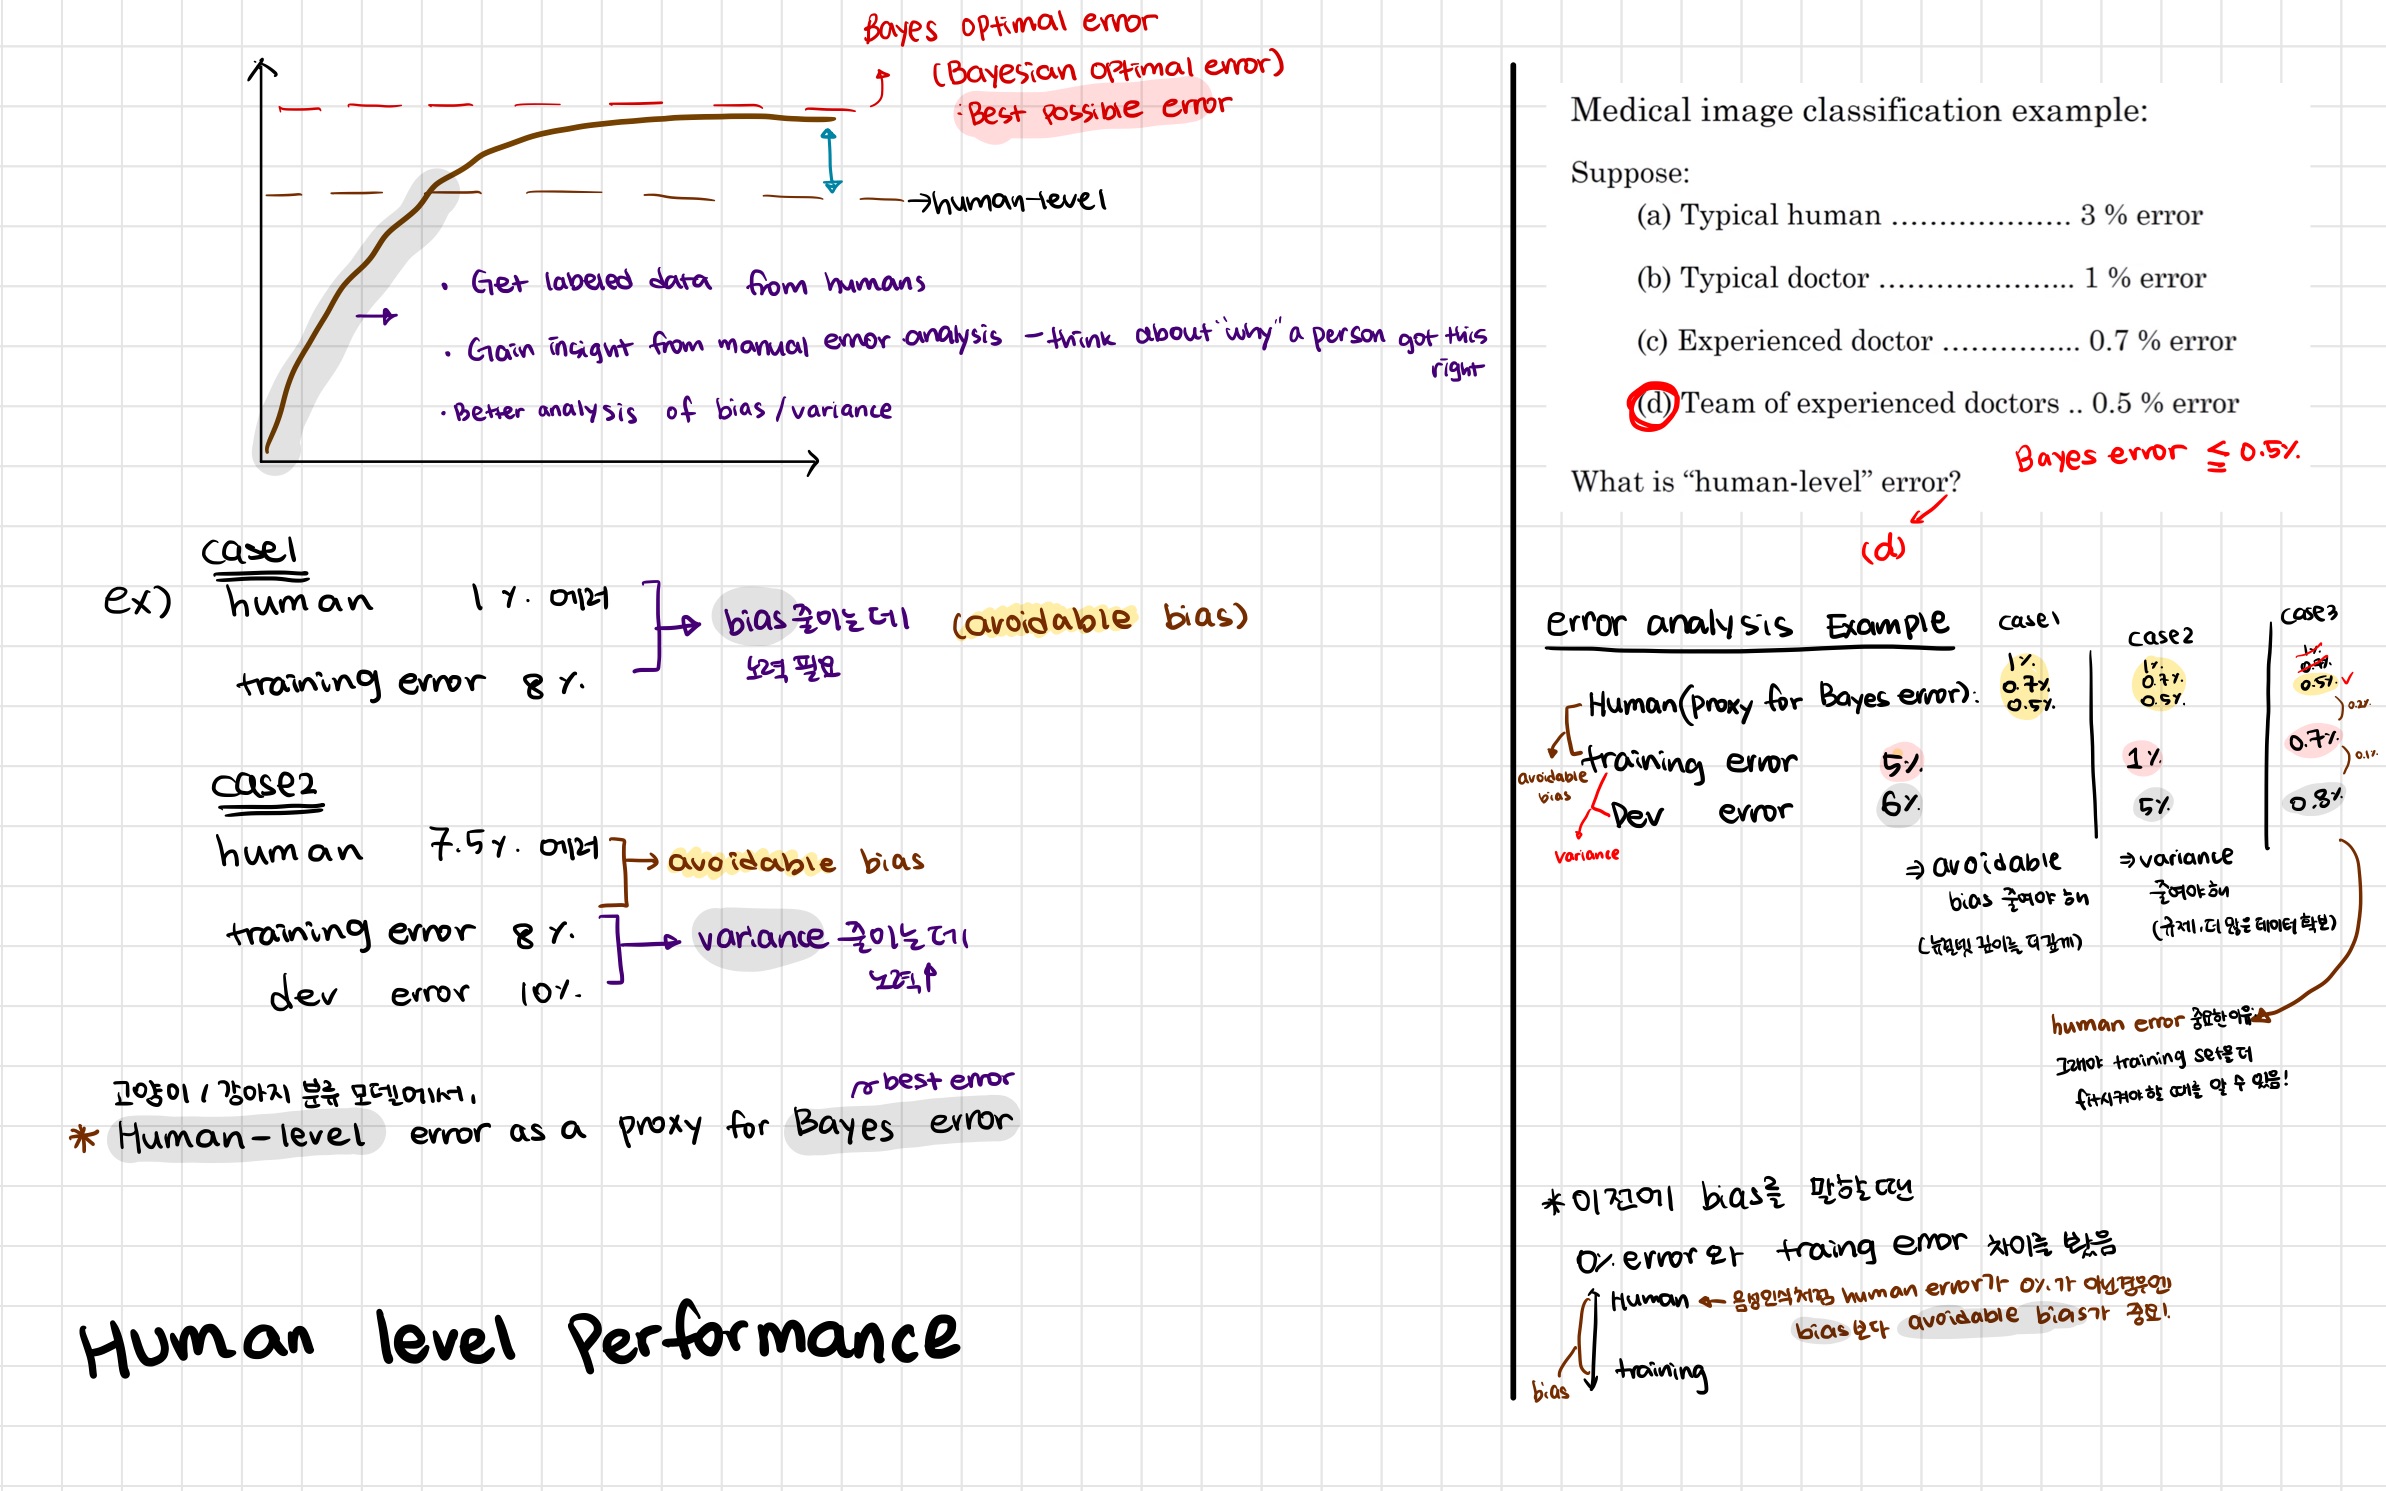 Bayes optimal error
(Bayesian optimal error)
:Best possible error
→human-level
· Get labeled data from humans
· Gain insight from manual error analysis - think about "why" a person got this
right
· Better analysis of bias/variance
case1
ex) human 1%. 에러
training error 8%.
bias 줄이는데 (avoidable bias)
노력 필요
case2
human 7.5%. 에러
→avoidable bias
training error 8%.
dev error 10%.
variance 줄이는데
노력↑
고양이/강아지 분류 모델에서,
best error
* Human-level error as a proxy for Bayes error
Human level Performance
Medical image classification example:
Suppose:
(a) Typical human ……………….. 3 % error
(b) Typical doctor ………………... 1 % error
(c) Experienced doctor …………... 0.7 % error
(d) Team of experienced doctors .. 0.5 % error
Bayes error ≦ 0.5%
What is “human-level” error?
(d)
error analysis Example
case1
1%.
0.7%.
0.5%.
case2
1%.
0.7%.
0.5%.
case3
1%.
0.7%.
0.5%. ✓
Human(proxy for Bayes error):
0.2%.
training error 5%. 1% 0.7%.
0.1%.
avoidable
bias
Dev error 6%. 5% 0.8%
variance
⇒ avoidable
bias 줄여야 해
(뉴럴넷 깊이를 더 깊게)
⇒ variance
줄여야해
(규제, 더 많은 데이터 확보)
human error 중요한이유
그래야 training set을 더
fit시켜야할 때를 알 수 있음!
* 이전에 bias를 말할 땐
0% error와 traing error 차이를 봤음
Human ← 음성인식처럼 human error가 0%.가 아닌경우엔
bias보다 avoidable bias가 중요!
training
bias